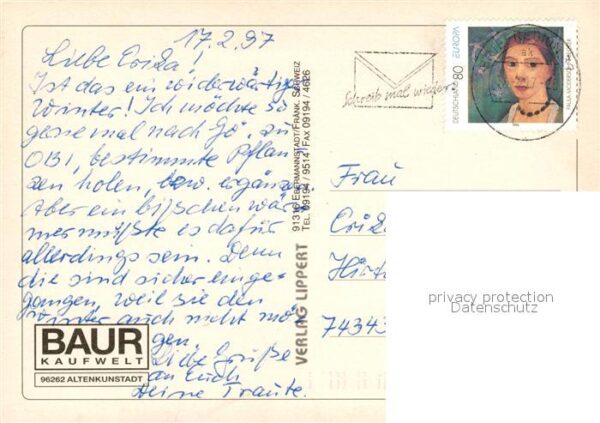 17.2.97
Liebe Erika!
Ist das ein widerwärtiger
Winter! Ich möchte so
gerne mal nach Gö. zu
OBI, bestimmte Pflan-
zen holen, bzw. ergänz
Aber ein bißchen wär-
mer müßte es dafür
allerdings sein. Denn
die sind sicher einge-
gangen, weil sie den
Winter auch nicht mö-
gen.
Liebe Grüße
an Euch
Deine Traute.
BAUR
KAUFWELT
96262 ALTENKUNSTADT
VERLAG LIPPERT
91316 EBERMANNSTADT/FRÄNK. SCHWEIZ
TEL. 09194 / 9514 FAX 09194 / 4626
Schreib mal wieder
DEUTSCHLAND 80 EUROPA
PAULA MODERSOHN-BECKER
Frau
Erika
Hirt
74343
privacy protection
Datenschutz